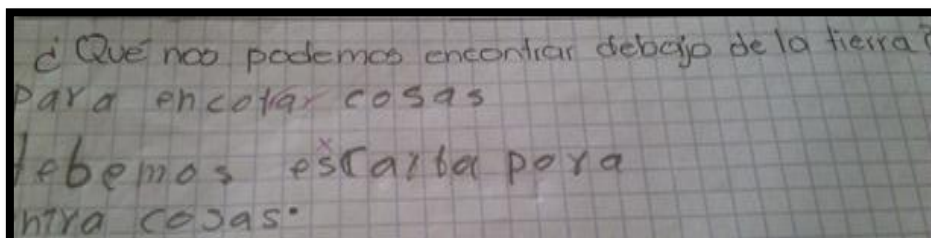 ¿Qué nos podemos encontrar debajo de la tierra?
para encotar cosas
debemos escarba para
ntra cosas.